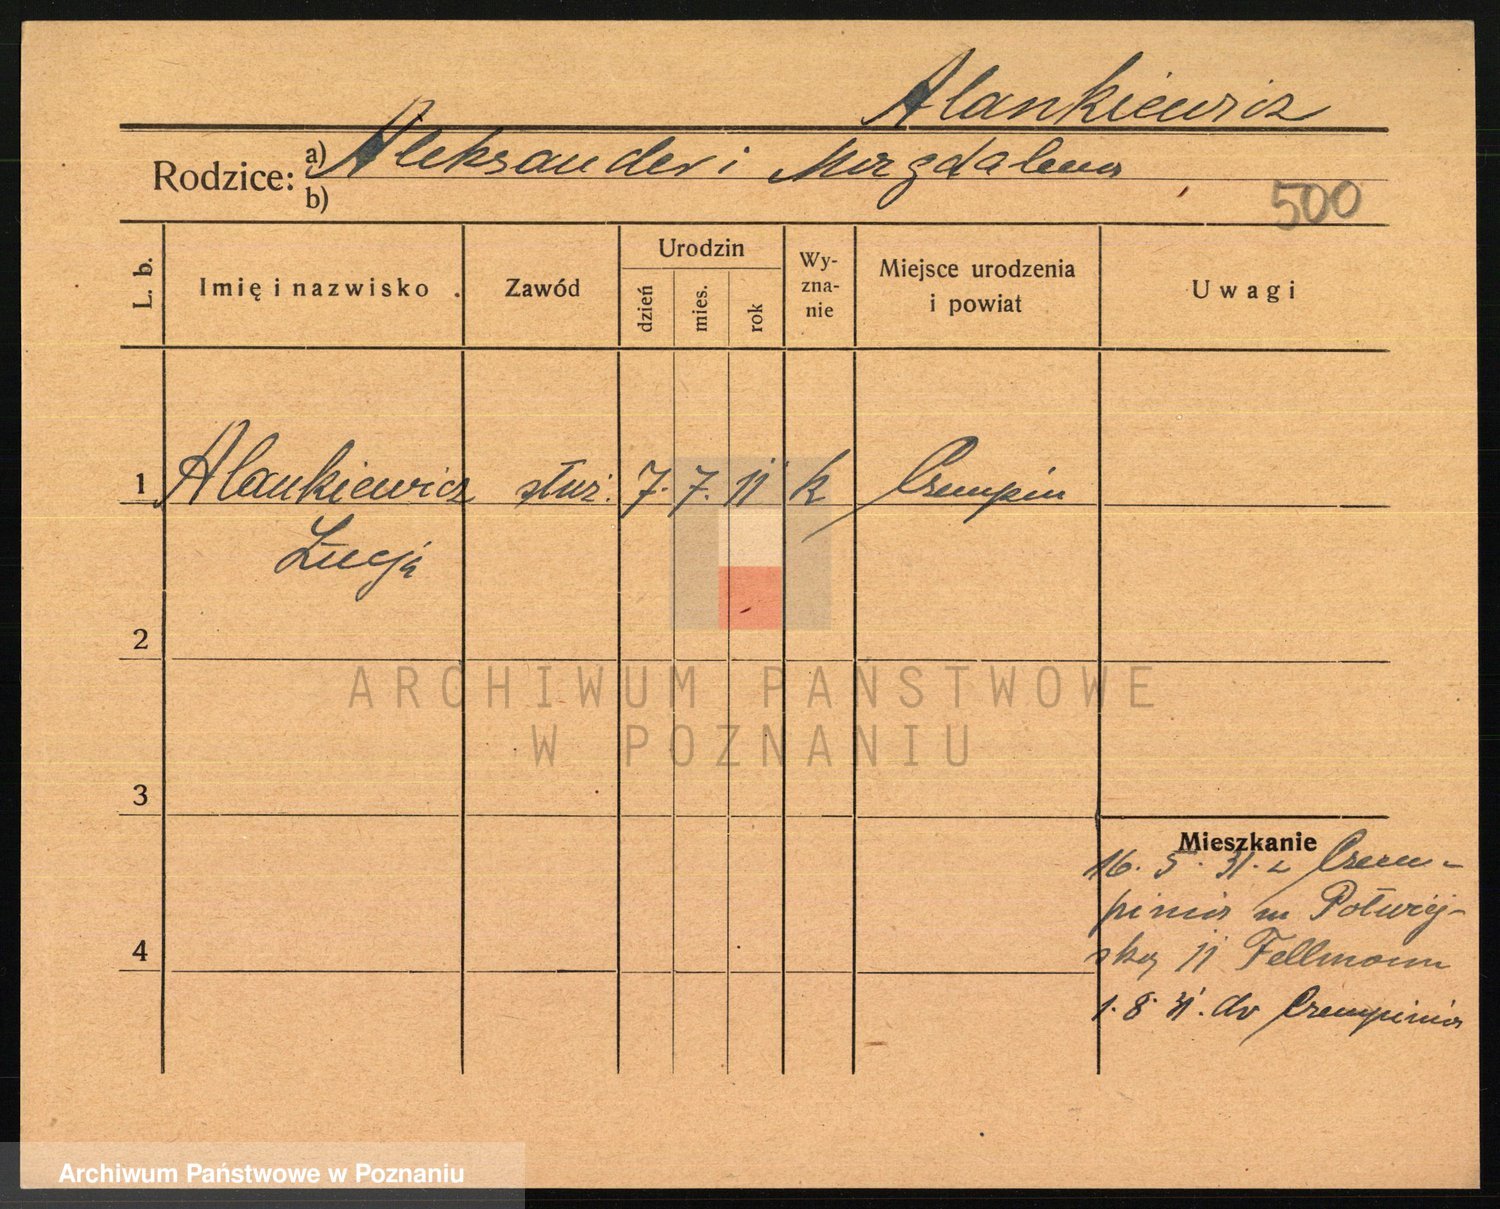 Alankiewicz
Rodzice: a) Aleksander i Magdalena
b)
500
L. b.
Imię i nazwisko
Zawód
Urodzin
dzień
mies.
rok
Wy-
zna-
nie
Miejsce urodzenia
i powiat
Uwagi
1 Alankiewicz służ. 7. 7. 11 k Czempiń
Łucja
2
ARCHIWUM PAŃSTWOWE
W POZNANIU
3
Mieszkanie
16. 5. 31. z Czem-
pinia m Połwiej-
ska 11 Fellmann
4
1. 8. 31. do Czempinia
Archiwum Państwowe w Poznaniu